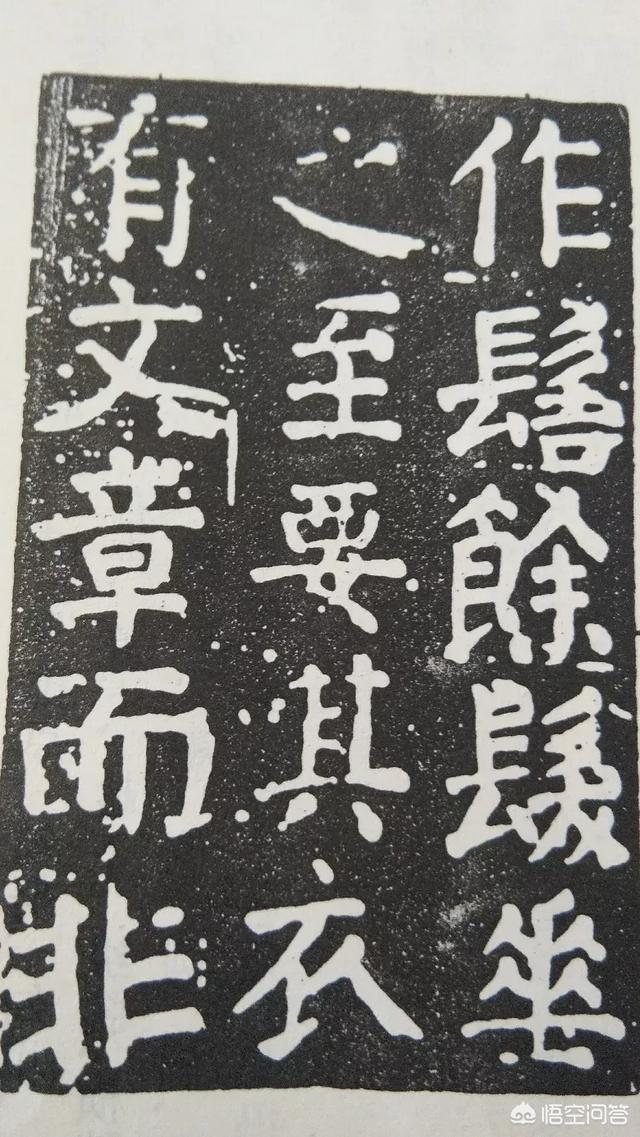 作髻餘髮垂
之至要其衣
有文章而非
悟空问答